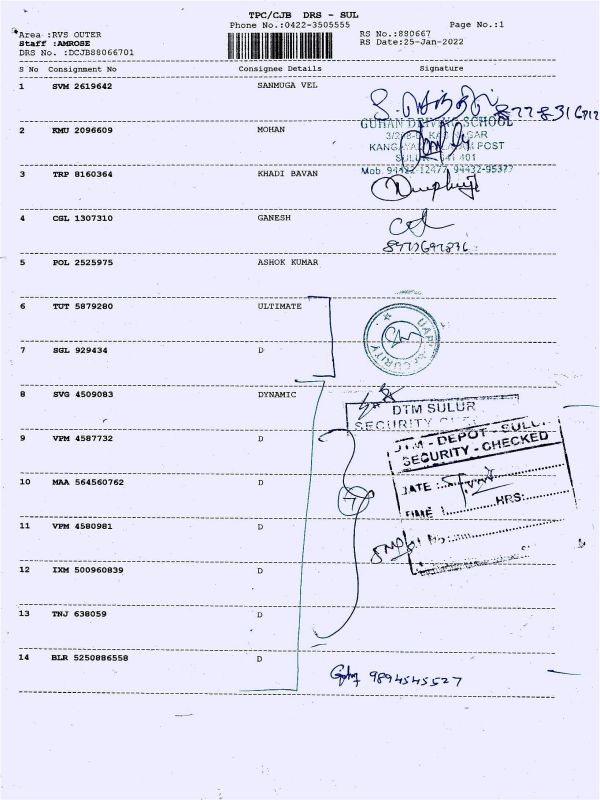 TPC/CJB DRS - SUL
Phone No.:0422-3505555
Page No.:1
Area :RVS OUTER
RS No.:880667
Staff :AMROSE
RS Date:25-Jan-2022
DRS No. :DCJB88066701
S No Consignment No Consignee Details Signature
1 SVM 2619642 SANMUGA VEL
GUHAN DRIVING SCHOOL
2 KMU 2096609 MOHAN
POST
SULUR 641 401
Mob. 94422-12477, 94432-95377
3 TRP 8160364 KHADI BAVAN
4 CGL 1307310 GANESH
5 POL 2525975 ASHOK KUMAR
6 TUT 5879280 ULTIMATE
7 SGL 929434 D
8 SVG 4509083 DYNAMIC
DTM SULUR
SECURITY
9 VPM 4587732 D
DTM - DEPOT - SULUR
SECURITY - CHECKED
10 MAA 564560762 D
DATE :
TIME : HRS:
11 VPM 4580981 D
12 IXM 500960839 D
13 TNJ 638059 D
14 BLR 5250886558 D
9894545527